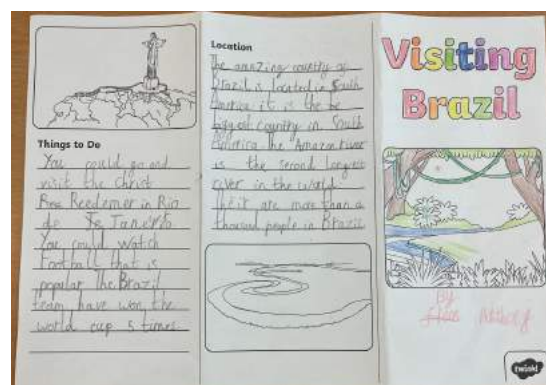 Things to Do
You could go and
visit the Christ
Reedemer in Rio
de Janeiro
You could watch
football that is
popular The Brazil
team have won the
world cup 5 times
Location
The amazing country of
Brazil is located in South
America it is the be
biggest country in South
America The Amazon river
is the second longest
river in the world
are more than a
thousand people in Brazil
Visiting
Brazil
By
twinkl